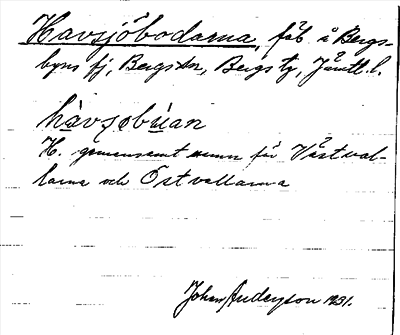 Havsjöbodarna, fäb å Bergs-
byns fj, Bergs sn, Bergs tg, Jämtl. l.
hàvsjøbùan
H. gemensamt namn för Västval-
larna och Östvallarna
Johan Anderson 1931.